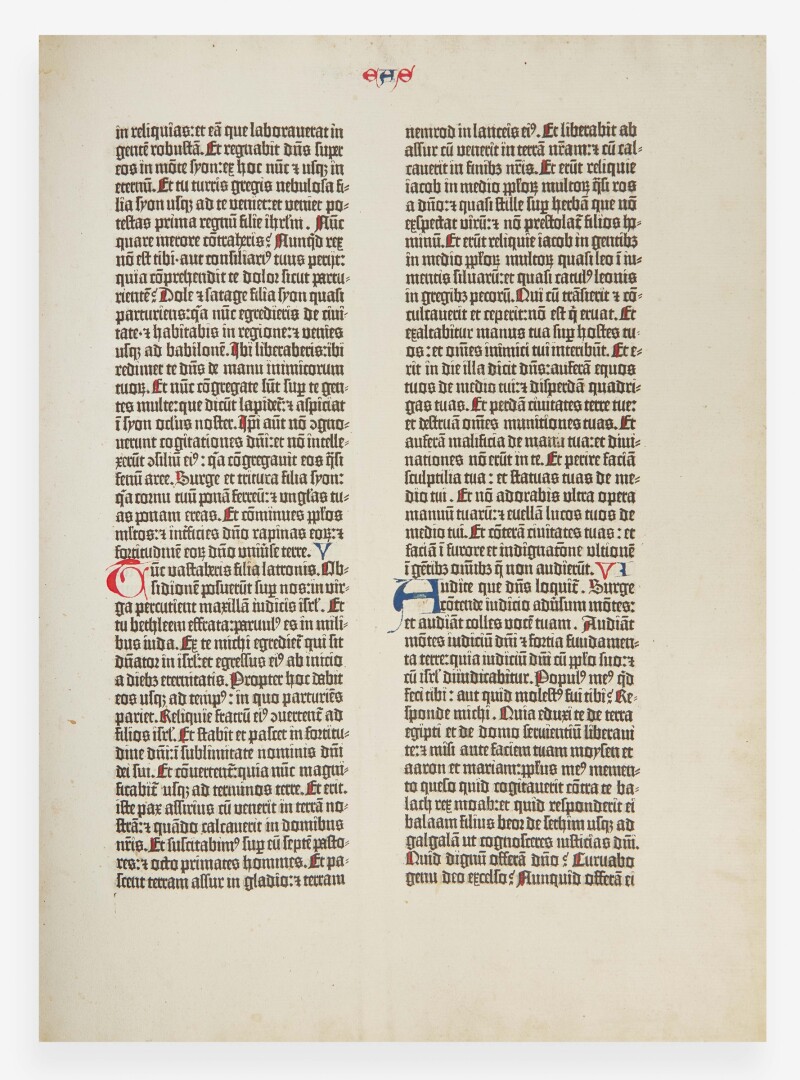 EAS
in reliquias: et eā que laborauerat in
gentē robustā. Et regnabit dn̄s super
eos in mōte syon: ex hoc nūc ⁊ usq; in
eternū. Et tu turris gregis nebulosa fi⸗
lia syon usq; ad te veniet: et veniet po⸗
testas prima regnū filie ihrlm̄. Nūc
quare merore cōtraheris? Nunq̇d rex
nō est tibi · aut consiliariꝰ tuus perijt:
quia cōprehendit te dolor sicut partu⸗
rientē? Dole ⁊ satage filia syon quasi
parturiens: q̄a nūc egredieris de ciui⸗
tate · ⁊ habitabis in regione: ⁊ venies
usq; ad babilonē. Ibi liberaberis: ibi
redimet te dn̄s de manu inimicorum
tuoꝝ. Et nūc cōgregate sūt suꝑ te gen⸗
tes multe: que dicūt lapidet̄: ⁊ aspiciat
ī syon oclus noster. Ip̄i aūt nō ↄgno⸗
uerunt cogitationes dn̄i: et nō intelle⸗
xerūt ↄsiliū eiꝰ: q̄a cōgregauit eos q̄si
fenū aree. Surge et tritura filia syon:
q̄a cornu tuū ponā ferreū: ⁊ vngl̄as tu⸗
as ponam ereas. Et cōminues ppl̄os
ml̄tos: ⁊ int̄ficies dn̄o rapinas eoꝝ: ⁊
fortitudinē eoꝝ dn̄o uniūse terre. V
Nūc vastaberis filia latronis. Ob⸗
sidionē posuerūt suꝑ nos: in vir⸗
ga percutient maxillā iudicis isrl̄. Et
tu bethleem effrata: paruulꝰ es in mili⸗
bus iuda. Ex te michi egrediet̄ qui sit
dn̄ator in isrl̄: et egressus eiꝰ ab inicio
a diebꝫ eternitatis. Propter hoc dabit
eos usq; ad tempꝰ: in quo parturiēs
pariet. Reliquie fratrū eiꝰ ↄuertent̄ ad
filios isrl̄. Et stabit et pascet in fortitu⸗
dine dn̄i: ī sublimitate nominis dn̄i
dei sui. Et cōuertent̄: quia nūc magni⸗
ficabit̄ usq; ad terminos terre. Et erit.
iste pax assirius cū venerit in terrā no⸗
strā: ⁊ quādo calcauerit in domibus
nr̄is. Et suscitabimꝰ suꝑ eū septē pasto⸗
res: ⁊ octo primates homines. Et pa⸗
scent terram assur in gladio: ⁊ terram
nemrod in lanceis eiꝰ. Et liberabit ab
assur cū venerit in terrā nr̄am: ⁊ cū cal⸗
cauerit in finibꝫ nr̄is. Et erūt reliquie
iacob in medio ppl̄oꝝ multoꝝ q̄si ros
a dn̄o: ⁊ quasi stille suꝑ herbā que nō
exspectat virū: ⁊ nō prestolat̄ filios ho⸗
minū. Et erūt reliquie iacob in gentibꝫ
in medio ppl̄oꝝ multoꝝ quasi leo ī iu⸗
mentis siluarū: et quasi catulꝰ leonis
in gregibꝫ pecorū. Qui cū trāsierit ⁊ cō⸗
culcauerit et ceperit: nō est q̇ eruat. Et
exaltabitur manus tua suꝑ hostes tu⸗
os: et om̄es inimici tui interibūt. Et e⸗
rit in die illa dicit dn̄s: auferā equos
tuos de medio tui: ⁊ disperdā quadri⸗
gas tuas. Et perdā ciuitates terre tue:
et destruā om̄es munitiones tuas. Et
auferā maleficia de manu tua: et diui⸗
nationes nō erūt in te. Et perire faciā
sculptilia tua: et statuas tuas de me⸗
dio tui. Et nō adorabis vltra opera
manuū tuarū: ⁊ euellā lucos tuos de
medio tui. Et cōterā ciuitates tuas: et
faciā ī furore et indignatōne vltionē
ī gētibꝫ om̄ibꝫ q̄ non audierūt. VI
Audite que dn̄s loquit̄. Surge
cōtende iudicio adūsum mōtes:
et audiāt colles vocē tuam. Audiāt
mōtes iudiciū dn̄i ⁊ fortia fundamen⸗
ta terre: quia iudiciū dn̄i cū ppl̄o suo: ⁊
cū isrl̄ diiudicabitur. Populꝰ meꝰ q̇d
feci tibi: aut quid molestꝰ fui tibi? Re⸗
sponde michi. Quia eduxi te de terra
egipti et de domo seruientiū liberaui
te: ⁊ misi ante faciem tuam moysen et
aaron et mariam: ppl̄us meꝰ memen⸗
to queso quid cogitauerit cōtra te ba⸗
lach rex moab: et quid responderit ei
balaam filius beor de sethim usq; ad
galgalā ut cognosceres iusticias dn̄i.
Quid dignū offerā dn̄o? Curuabo
genu deo excelso? Nunquid offerā ei